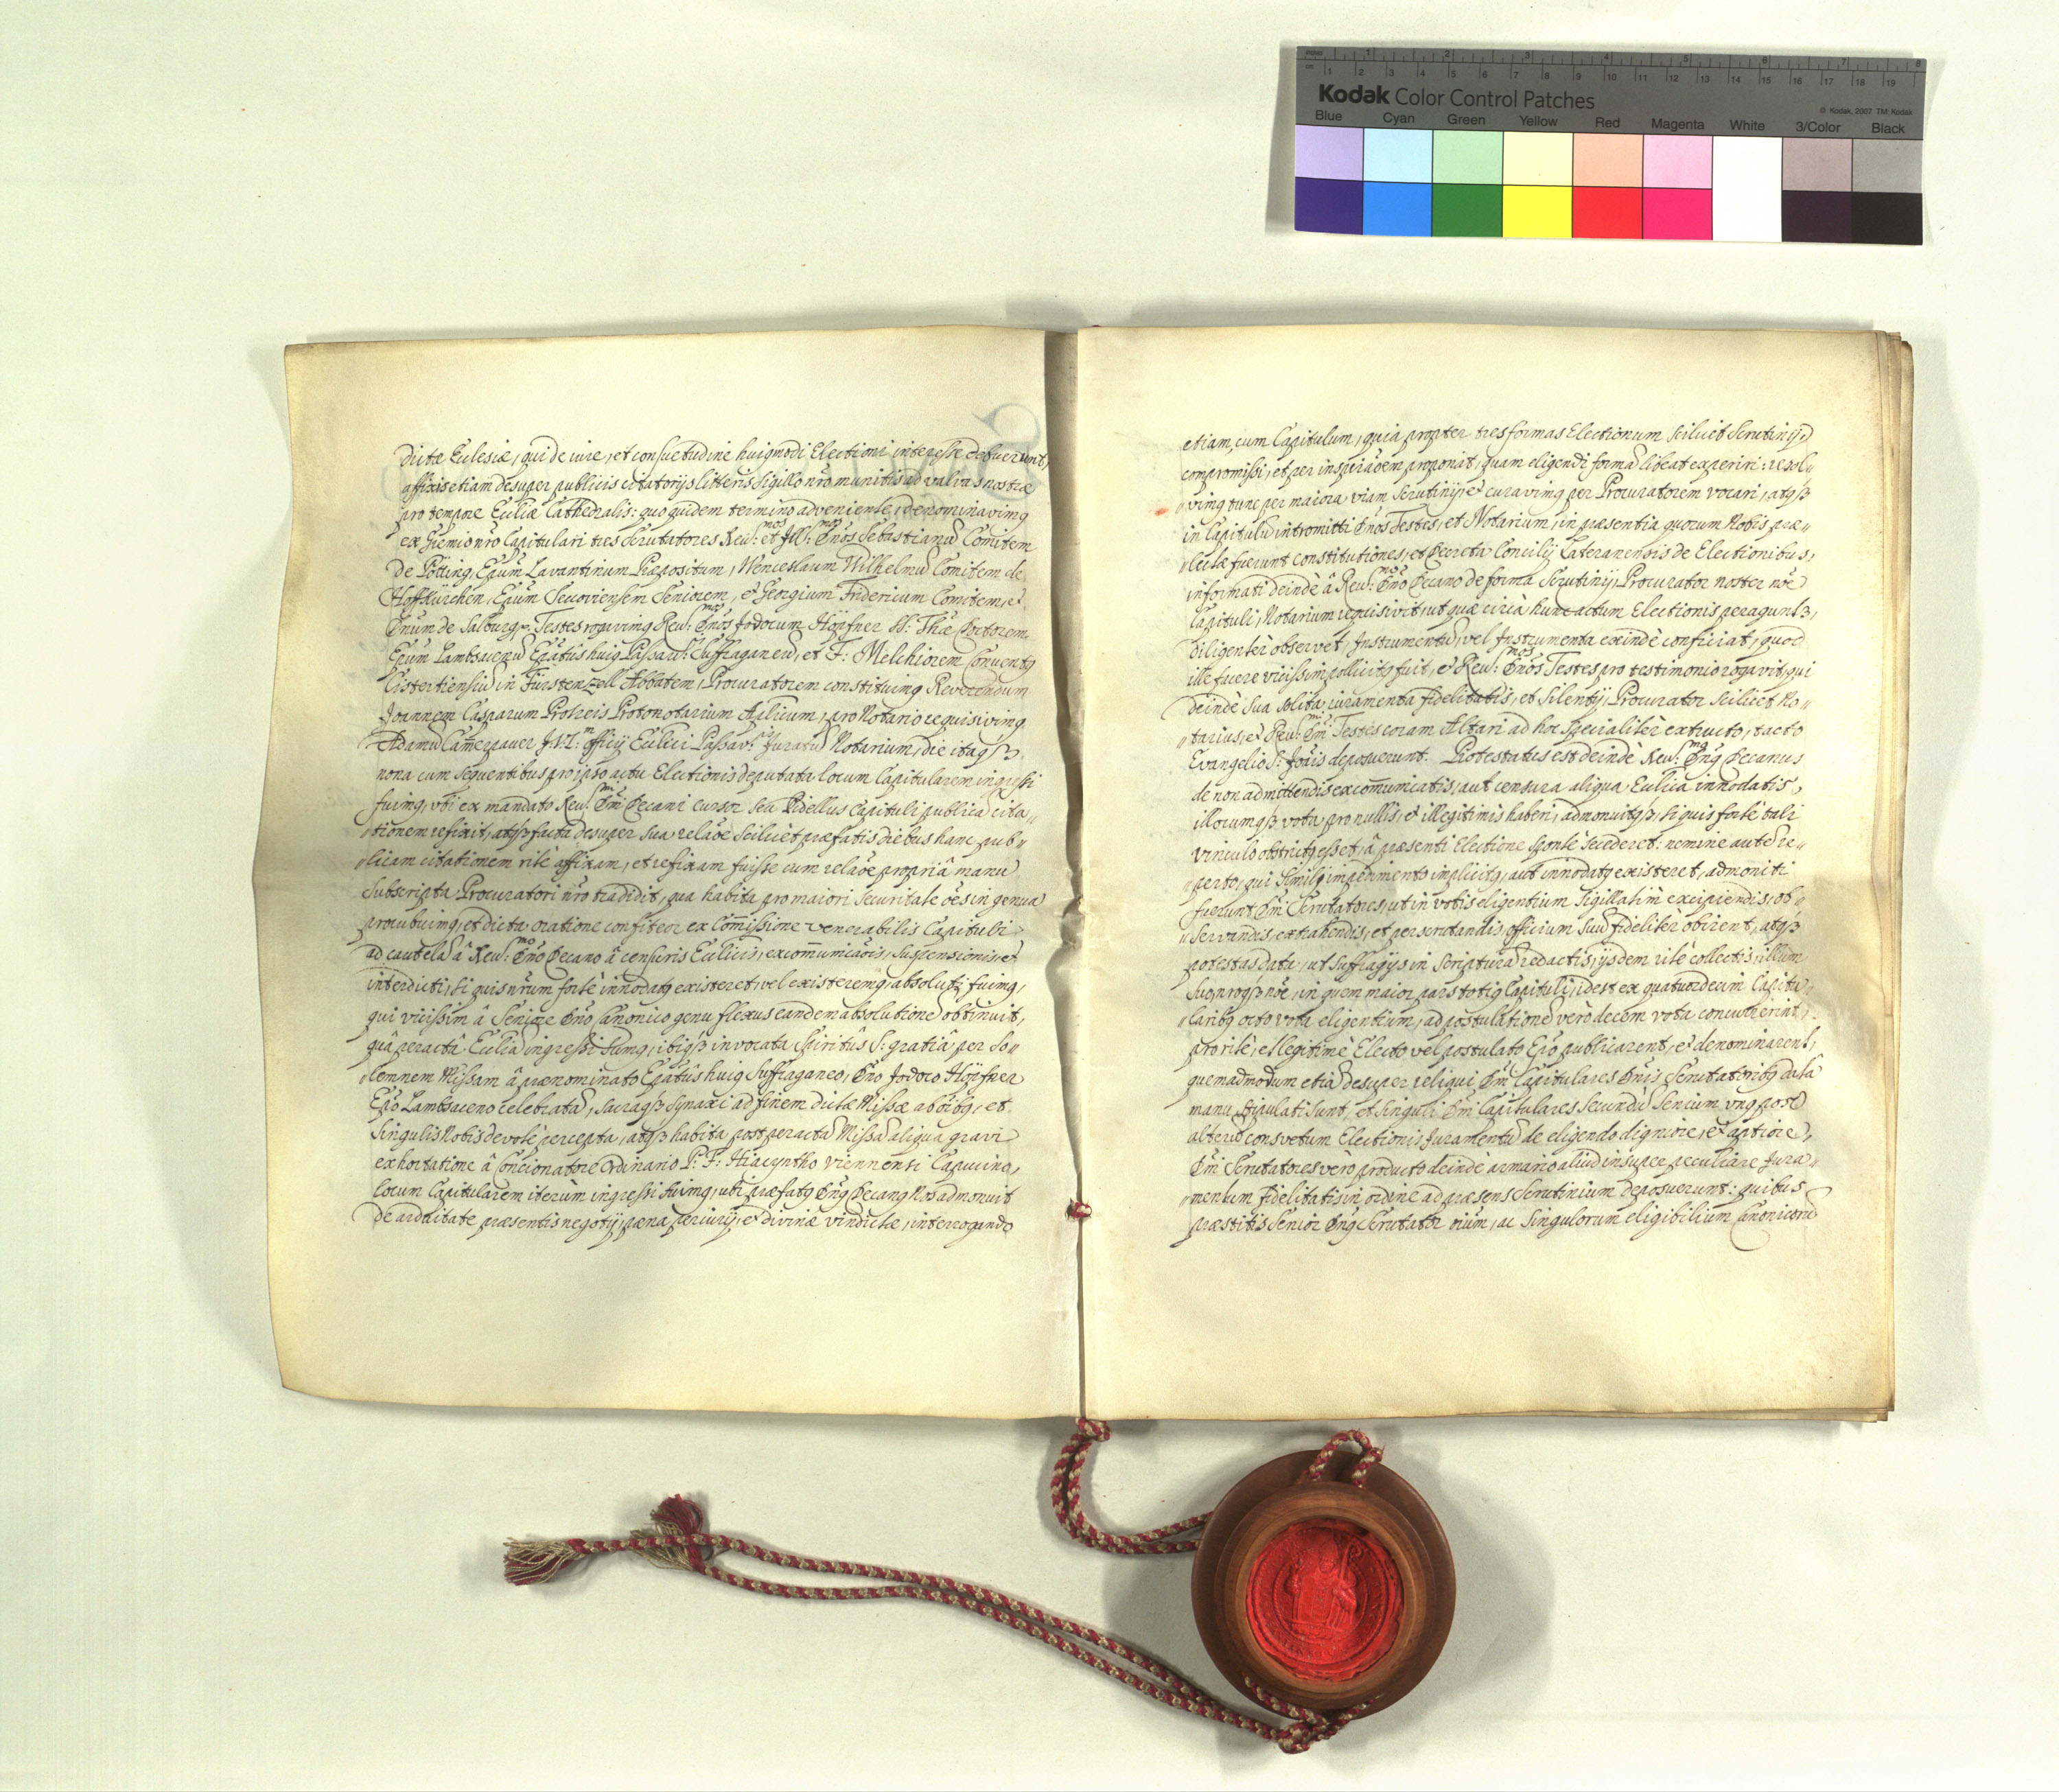 Kodak Color Control Patches
© Kodak, 2007 TM: Kodak
Blue Cyan Green Yellow Red Magenta White 3/Color Black
dictæ Ecclesiæ, qui de iure, et consuetudine huiusmodi Electioni interesse debuerunt,
affixis etiam desuper publicis citatorijs litteris Sigillo nr̃o munitis ad valvas nostræ
pro tempore Eccliæ Cathedralis: quo quidem termino adveniente, denominavimꝰ
ex Gremio nr̃o Capitulari tres Scrutatores Reu: mos et Ill: mos Dños Sebastianũ Comitem
de Pötting, Epũm Lavantinum Præpositum, Wenceslaum Wilhelmũ Comitem de
Hoffkürchen, Epũm Seccoviensem Seniorem, et Georgium Fridericum Comitem, et
Dnũm de Salburg. Testes rogavimꝰ Reu: mos Dños Jodocum Höpfner SS: Thiæ Doctorem
Epũm Lambsacenũ Epatûs huiꝰ Passav: Suffraganeũ, et F: Melchiorem Conventꝰ
Cistertiensiũ in Fürstenzell Abbatem, Procuratorem constituimꝰ Reverendum
Joannem Casparum Protonotarium Aplicum, pro Notario requisivimꝰ
Adamũ Cam̃erpauer officij Ecclici Passav: Juratũ Notarium, die itaqꝫ
nona cum sequentibus pro ipso actu Electionis deputata locum Capitularem ingressi
fuimꝰ, vbi ex mandato Reu: Dñi Decani cursor seu Pidellus Capituli publicã cita„
„tionem refixit, atqꝫ facta desuper sua relaõe scilicèt præfatis diebus hanc pub„
„licam citationem ritè affixam, et refixam fuisse cum relaõe propriâ manu
subscripta Procuratori nr̃o tradidit, qua habita pro maiori securitate oẽs in genua
procubuimꝰ, et dicta oratione confiteor ex Com̃issione venerabilis Capituli
ad cautelã â Reu: mo Dño Decano â censuris Ecclicis, excom̃unicaõis, suspensionis, et
interdicti, si quis nr̃um fortè innodatꝰ existeret, vel existeremꝰ, absoluti fuimꝰ,
qui vicissim â Seniore Dño Canonico genu flexus eandem absolutionẽ obtinuit,
quâ peractâ Eccliã ingressi sumꝰ, ibiqꝫ invocata Spiritûs S: gratiâ per so„
„lemnem Missam â prænominato Epatûs huiꝰ Suffraganeo, Dño Jodoco Höpfner
Epõ Lambsaceno celebratã, sacraqꝫ synaxi ad finem dictæ Missæ ab oĩbꝰ, et
singulis Nobis devotè percepta, atqꝫ habita post peractã Missã aliqua gravi
exhortatione â Concionatore Ordinario P: F: Hiacyntho Viennensi Capucino,
locum Capitularem iterùm ingressi fuimꝰ, ubi præfatꝰ Dñꝰ Decanꝰ Nos admonuit
de arduitate præsentis negotij, pœna periurij, et divinæ vindictæ, interrogando
etiam, cum Capitulum, quia propter tres formas Electionum scilicèt Scrutinij,
compromissi, et per inspiraõem proponat, quam eligendi formã libeat experiri: resol„
„vimꝰ tunc per maiora viam Scrutinij, et curavimꝰ per Procuratorem vocari, atqꝫ
in Capitulũ intromitti Dños Testes, et Notarium, in præsentia quorum Nobis præ„
„lectæ fuerunt constitutiones, et Decreta Concilij Lateranensis de Electionibus,
informati deindè â Reu: mo Dño Decano de forma Scrutinij, Procurator noster nõe
Capituli, Notarium requisivit, ut quæ circa hunc actum Electionis peraguntꝫ,
diligentèr observet, Instrumentũ, vel Instrumenta exindè conficiat, quod
ille facere vicissim pollicitꝰ fuit, et Reu: mos Dños Testes pro testimonio rogavit, qui
deindè sua solita iuramenta fidelitatis, et silentij, Procurator scilicèt No„
„tarius, et Reu: mi Dñi Testes coram Altari ad hoc specialitèr extructo, tacto
Evangelio S: Joãis deposuerunt. Protestatus est deindè Reu: mꝰ Dñꝰ Decanus
de non admittendis excom̃unicatis, aut censura aliqua Ecclica innodatis,
illorumqꝫ vota pro nullis, et illegitimis haberi, admonuitqꝫ, si quis fortè tali
vinculo obstrictꝰ esset, â præsenti Electione spontè secederet: nemine autẽ re„
„perto, qui simili impedimento implicitꝰ, aut innodatꝰ existeret, admoniti
fuerunt Dñi Scrutatores, ut in votis eligentium sigillatim excipiendis, ob„
„servandis, extrahendis, et perscrutandis officium suũ fidelitèr obirent, atqꝫ
potestas data, ut suffragijs in scripturã redactis, ijsdem ritè collectis, illum
suo, nroqꝫ nõe, in quem maior pars totiꝰ Capituli, id est ex quatuordecim Capitu„
„laribꝰ octo vota eligentium, ad postulationẽ verò decem vota concurrerint,
pro ritè, et legitimè Electo vel postulato Epõ publicarent, et denominarent,
quemadmodum etiã desuper reliqui Dñi Capitulares Dñis Scrutatoribꝰ datâ
manu stipulati sunt, et singuli Dñi Capitulares secundũ senium vnꝰ post
alterũ consvetum Electionis Juramentũ de eligendo digniore, et aptiore,
Dñi Scrutatores verò producto deindè armario aliud insuper peculiare Jura„
„mentum fidelitatis in ordine ad præsens Scrutinium deposuerunt: quibus
præstitis Senior Dñꝰ Scrutator oĩum, ac singulorum eligibilium Canonicorũ